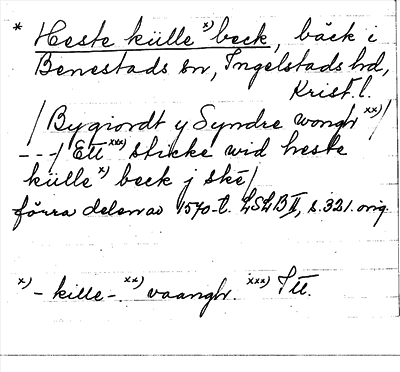 * Heste külle x) beck, bäck i
Benestads sn, Ingelstads hd,
Krist. l.
/ Bygiordt y Syndre wongr xx) /
--- / Ett xxx) sticke wid heste
külle x) beck j ske /
förra delen av 1570-t. LSLB II, s. 321. orig.
x) - kille -. xx) vaangr. xxx) Itt.